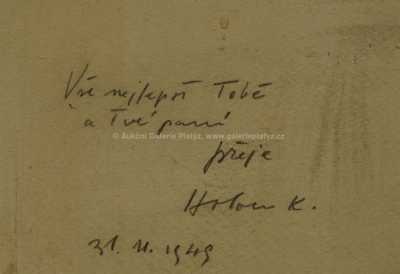 Vše nejlepší Tobě
a Tvé paní
© Aukční Galerie Platýz, www.galerieplatyz.cz
přeje
K.
31. 1949